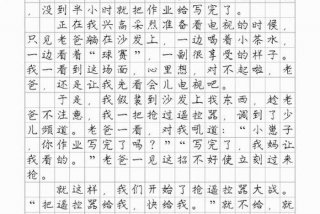 ，没到半小时就把作业给写完了。
正在我兴高采烈准备看电视的时候，
只见老爸躺在沙发上，一边喝着小茶水，
一边看着“球赛”，一副很享受的样子。
我一看到这场面，心里想，对不起啦，老
爸，还是让我先看会儿电视吧。
于是，我假装到沙发上找东西，趁老
爸不注意，我一把抢过遥控器，调到了少
儿频道。老爸一看，对我吼道：“小崽子
，你作业写完了吗？”“写完了，我妈让
我看的。”老爸一见这招不好使立刻过来
抢。
就这样，我们开始了抢遥控器大战。
“把遥控器给我，快给我。”“就不给